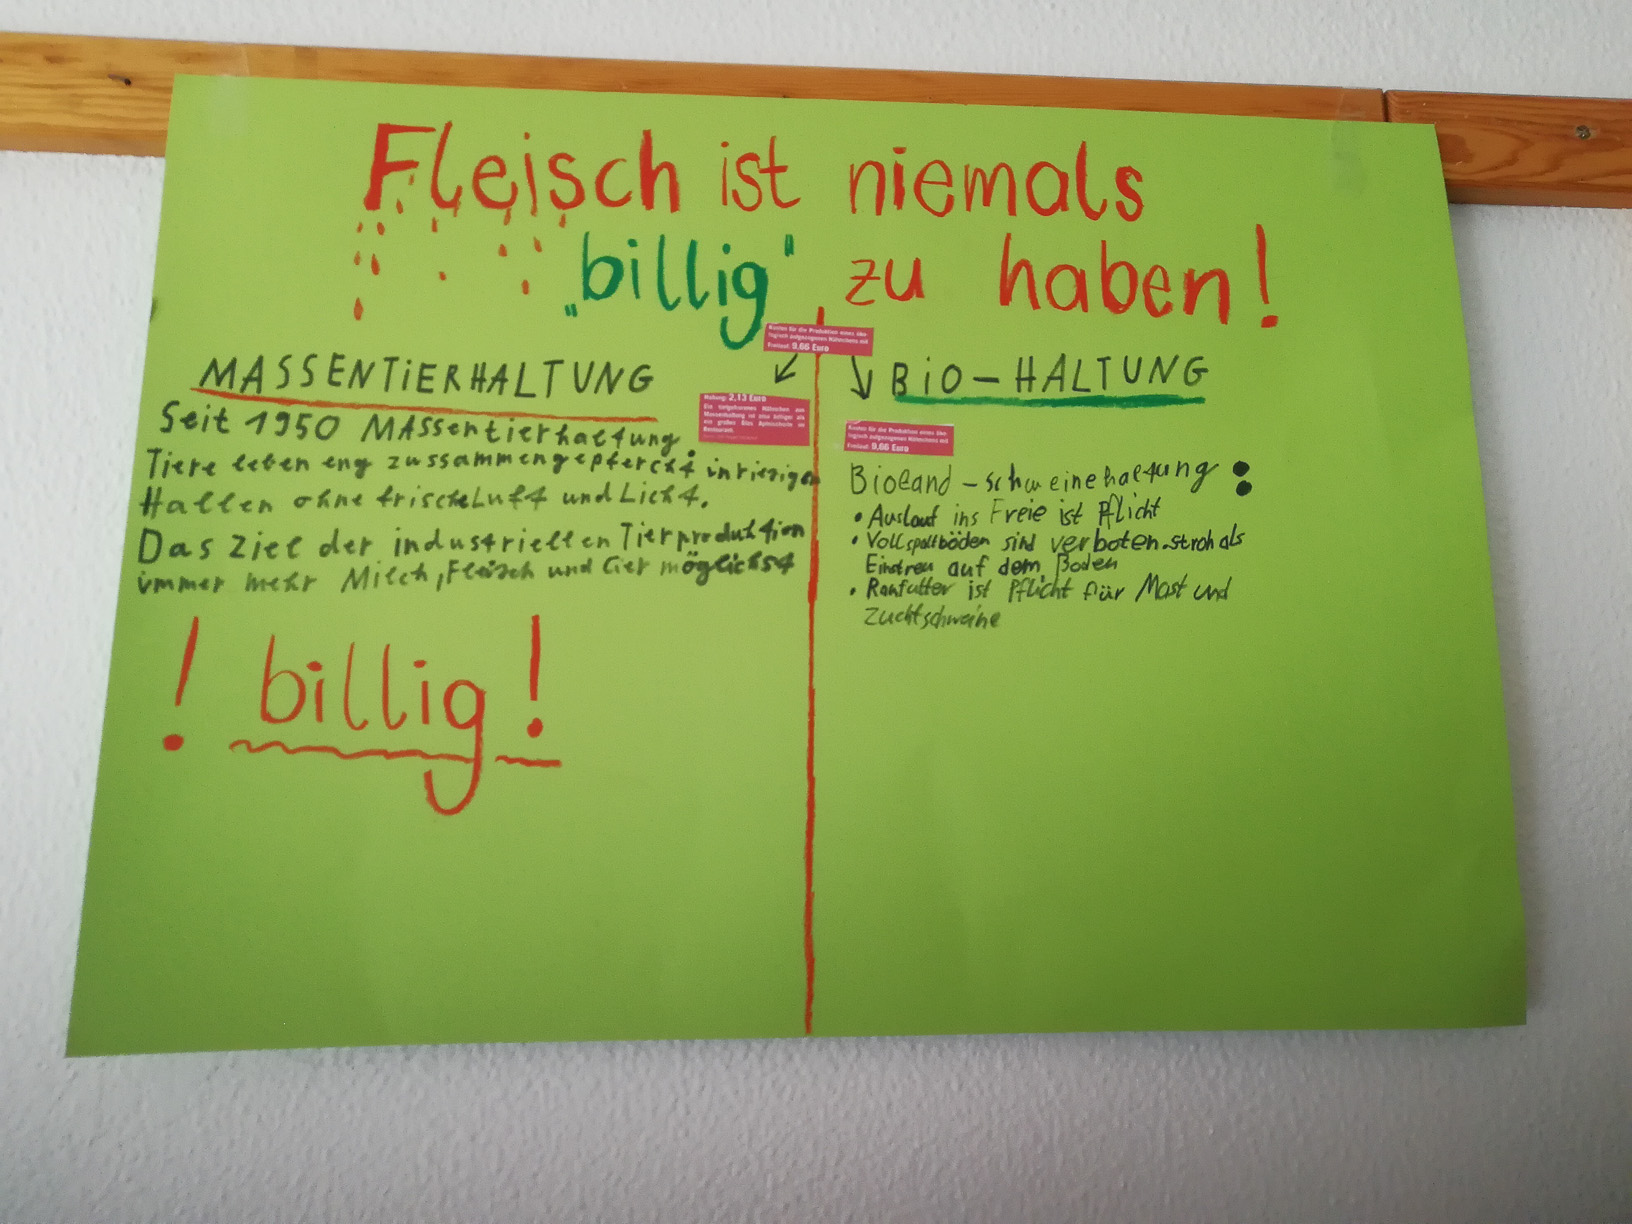 Fleisch ist niemals
„billig" zu haben!
Kosten für die Produktion eines öko-
logisch aufgezogenen Hähnchens mit
Freilauf: 9,66 Euro
MASSENTiERHALTUNG
Haltung: 2,13 Euro
Ein tiefgefrorenes Hähnchen aus
Massenhaltung ist etwa billiger als
ein großes Glas Apfelschorle im
Restaurant.
Seit 1950 MAssentierhaltung.
Tiere leben eng zussammengepfercht in riesigen
Hallen ohne frische Luft und Licht.
Das Ziel der industriellen Tierproduktion
immer mehr Milch, Fleisch und Eier möglichst
! billig !
BiO-HALTUNG
Kosten für die Produktion eines öko-
logisch aufgezogenen Hähnchens mit
Freilauf: 9,66 Euro
Bioland-schweinehaltung:
• Auslauf ins Freie ist Pflicht
• Vollspaltböden sind verboten. stroh als
Einstreu auf dem Boden
• Raufutter ist Pflicht für Mast und
Zuchtschweine